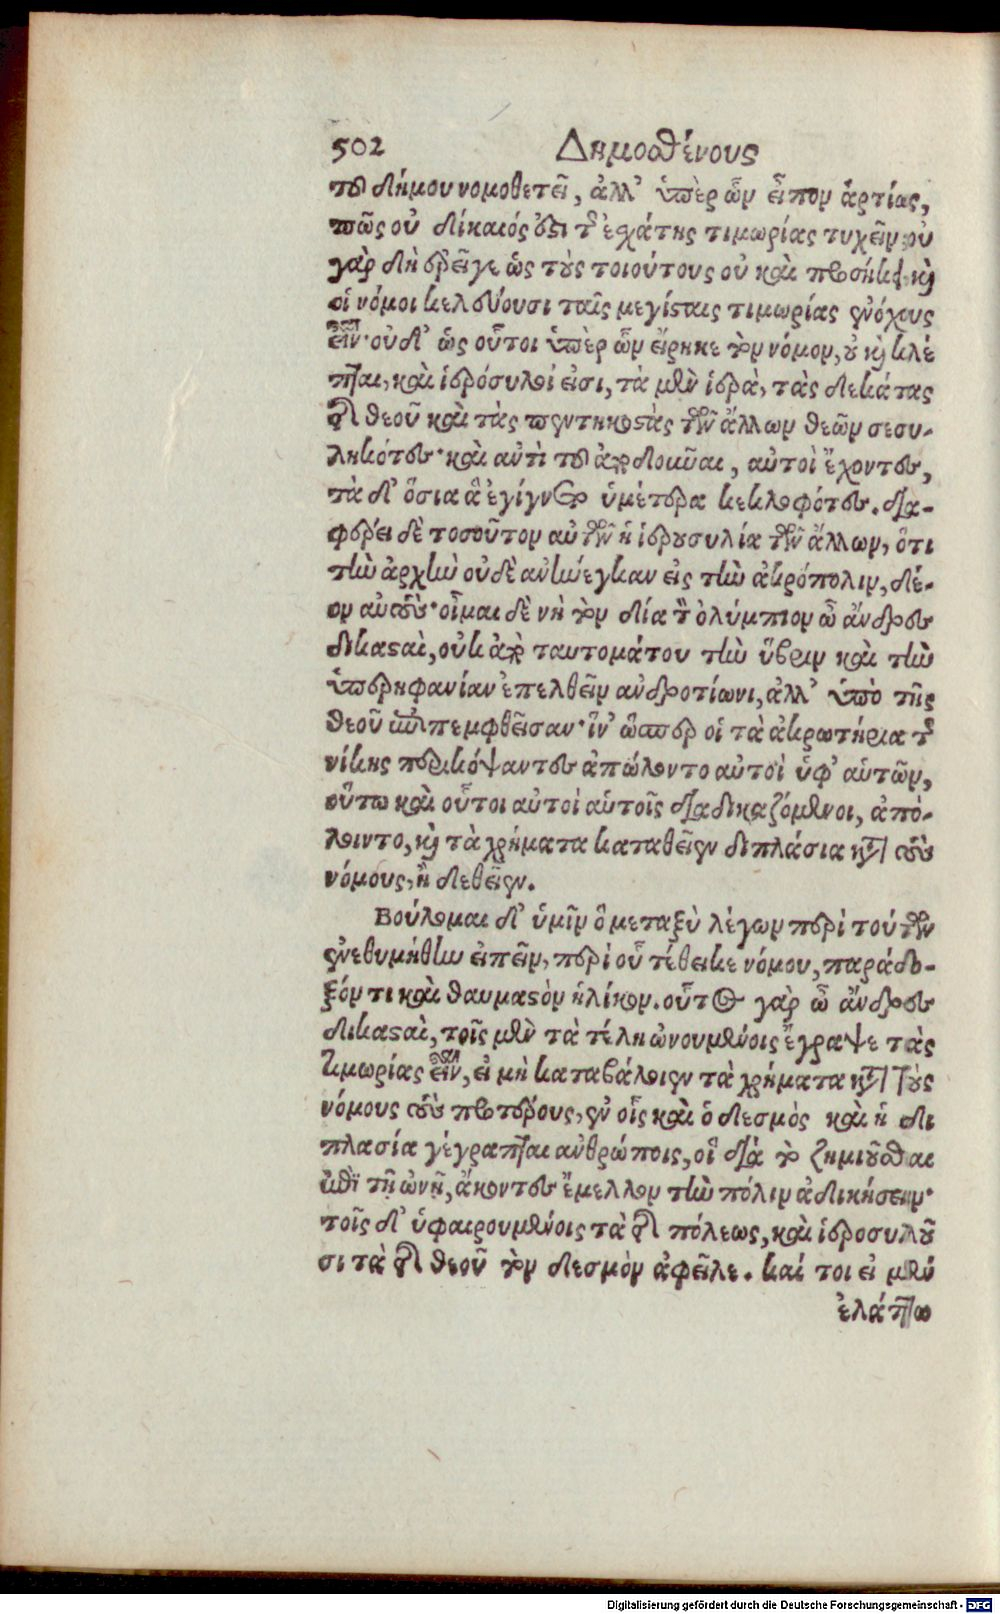 502 Δημοσθένους
τοῦ δήμου νομοθετεῖ, ἀλλ' ὑπὲρ ὧν εἶπον ἀρτίως,
πῶς οὐ δίκαιός ὅϛι τῆς ἐχάτης τιμωρίας τυχεῖν; οὐ
γὰρ δὴ ἐρεῖ γε ὡς τοὺς τοιούτους οὐ καὶ προσήκει, καὶ
οἱ νόμοι κελεύουσι ταῖς μεγίϛαις τιμωρίας ἐνόχους
εἶναι· οὐδ' ὡς οὗτοι ὑπὲρ ὧν εἴρηκε τὸν νόμον, οὐ καὶ κλέ
πται, καὶ ἱερόσυλοί εἰσι, τὰ μὲν ἱερὰ, τὰς δεκάτας
τῆς θεοῦ καὶ τὰς πεντηκοϛὰς τῶν ἄλλων θεῶν σεσυ-
ληκότες· καὶ αὐτὶ τοῦ ἀποδοῦναι, αὐτοὶ ἔχοντες,
τὰ δ' ὅσια ἃ ἐγίγνετο ὑμέτερα κεκλοφότες. δια-
φέρει δὲ τοσοῦτον αὐτῶν ἡ ἱερουσυλία τῶν ἄλλων, ὅτι
τὴν ἀρχὴν οὐδὲ ἀνήνεγκαν εἰς τὴν ἀκρόπολιν, δέ-
ον αὐτούς· οἶμαι δὲ νὴ τὸν δία τὸν ὀλύμπιον ὦ ἄνδρες
δικαϛαὶ, οὐκ ἀπὸ ταυτομάτου τὴν ὕβριν καὶ τὴν
ὑπερηφανίαν ἐπελθεῖν ανδροτίωνι, ἀλλ' ὑπὸ τῆς
θεοῦ ἐπιπεμφθεῖσαν· ἵν' ὥσπερ οἱ τὰ ἀκρωτήρια τῆς
νίκης περικόψαντες ἀπώλοντο αὐτοὶ ὑφ' αὑτῶν,
οὕτω καὶ οὗτοι αὐτοὶ αὑτοῖς διαδικαζόμενοι, ἀπό-
λοιντο, καὶ τὰ χρήματα καταθεῖεν διπλάσια κατὰ τοὺς
νόμους, ἢ δεθεῖεν.
Βούλομαι δ' ὑμῖν ὃ μεταξὺ λέγων περὶ τούτων
ἐνεθυμήθην εἰπεῖν, περὶ οὗ τέθεικε νόμου, παράδο-
ξόν τι καὶ θαυμαϛὸν ἡλίκον. οὗτος γὰρ ὦ ἄνδρες
δικαϛαὶ, τοῖς μὲν τὰ τέλη ὠνουμένοις ἔγραψε τὰς
τιμωρίας εἶναι, εἰ μὴ καταβάλοιεν τὰ χρήματα κατὰ τοὺς
νόμους τοὺς προτέρους, ἐν οἷς καὶ ὁ δεσμὸς καὶ ἡ δι
πλασία γέγραπται ανθρώποις, οἳ διὰ τὸ ζημιοῦσθαι
ἐπὶ τῇ ὠνῇ, ἄκοντες ἔμελλον τὴν πόλιν ἀδικήσειν·
τοῖς δ' ὑφαιρουμένοις τὰ τῆς πόλεως, καὶ ἱεροσυλοῦ
σι τὰ τῆς θεοῦ τὸν δεσμὸν ἀφεῖλε. καί τοι εἰ μὲν
ἐλάττω
Digitalisierung gefördert durch die Deutsche Forschungsgemeinschaft - DFG